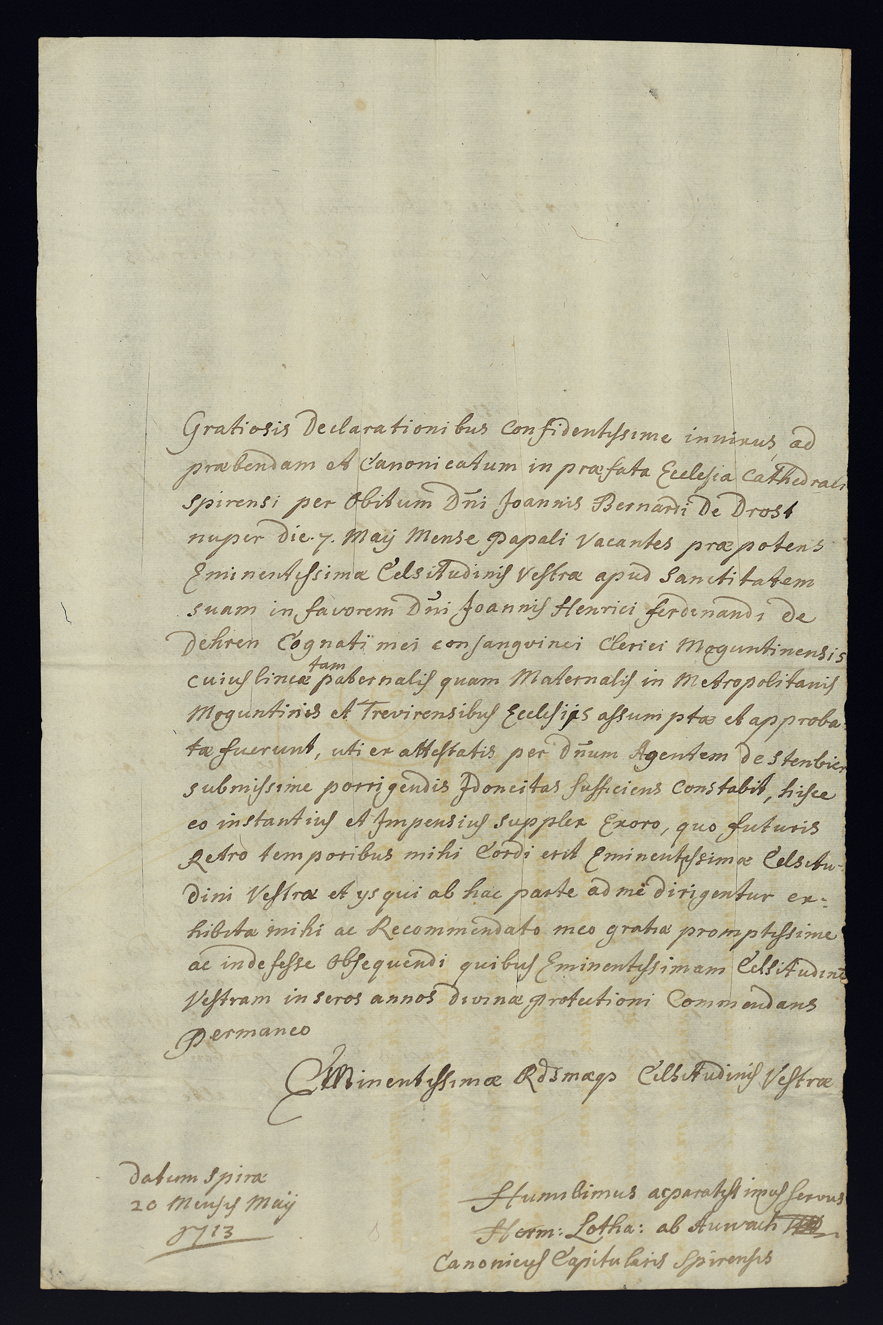 Gratiosis Declarationibus confidentissime innixus ad
præbendam et Canonicatum in præfata Ecclesia Cathedrali
spirensi per Obitum Dñi Joannis Bernardi De Drost
nuper die. 7. Maÿ Mense Papali Vacantes præpotens
Eminentissimæ Celsitudinis Vestræ apud Sanctitatem
suam in favorem Dñi Joannis Henrici ferdinandi de
Dehren Cognati mei consangvinei Clerici Moguntinensis
cuius lineæ tam paternalis quam Maternalis in Metropolitanis
Moguntinis et Trevirensibus Ecclesiis assumptæ et approba-
tæ fuerunt, uti ex attestatis per Dñum Agentem de Stenbier
submissime porrigendis Idoneitas sufficiens Constabit, hisce
eo instantius et Impensius supplex Exoro, quo futuris
Retrò temporibus mihi Cordi erit Eminentissimæ Celsitu-
dini Vestræ et ys qui ab hac parte ad me dirigentur ex-
hibitæ mihi ac Recommendato meo gratiæ promptissime
ac indefesse Obsequendi quibus Eminentissimam Celsitudinē
Vestram in seros annos divinæ protectioni Commendans
Permaneo
Eminentissimæ Rdsmæqȝ Celsitudinis Vestræ
Datum spiræ
20 Mensis Maÿ
1713
Humilimus ac paratissimus servus
Herm: Lotha: ab Auwach
Canonicus Capitularis Spirensis